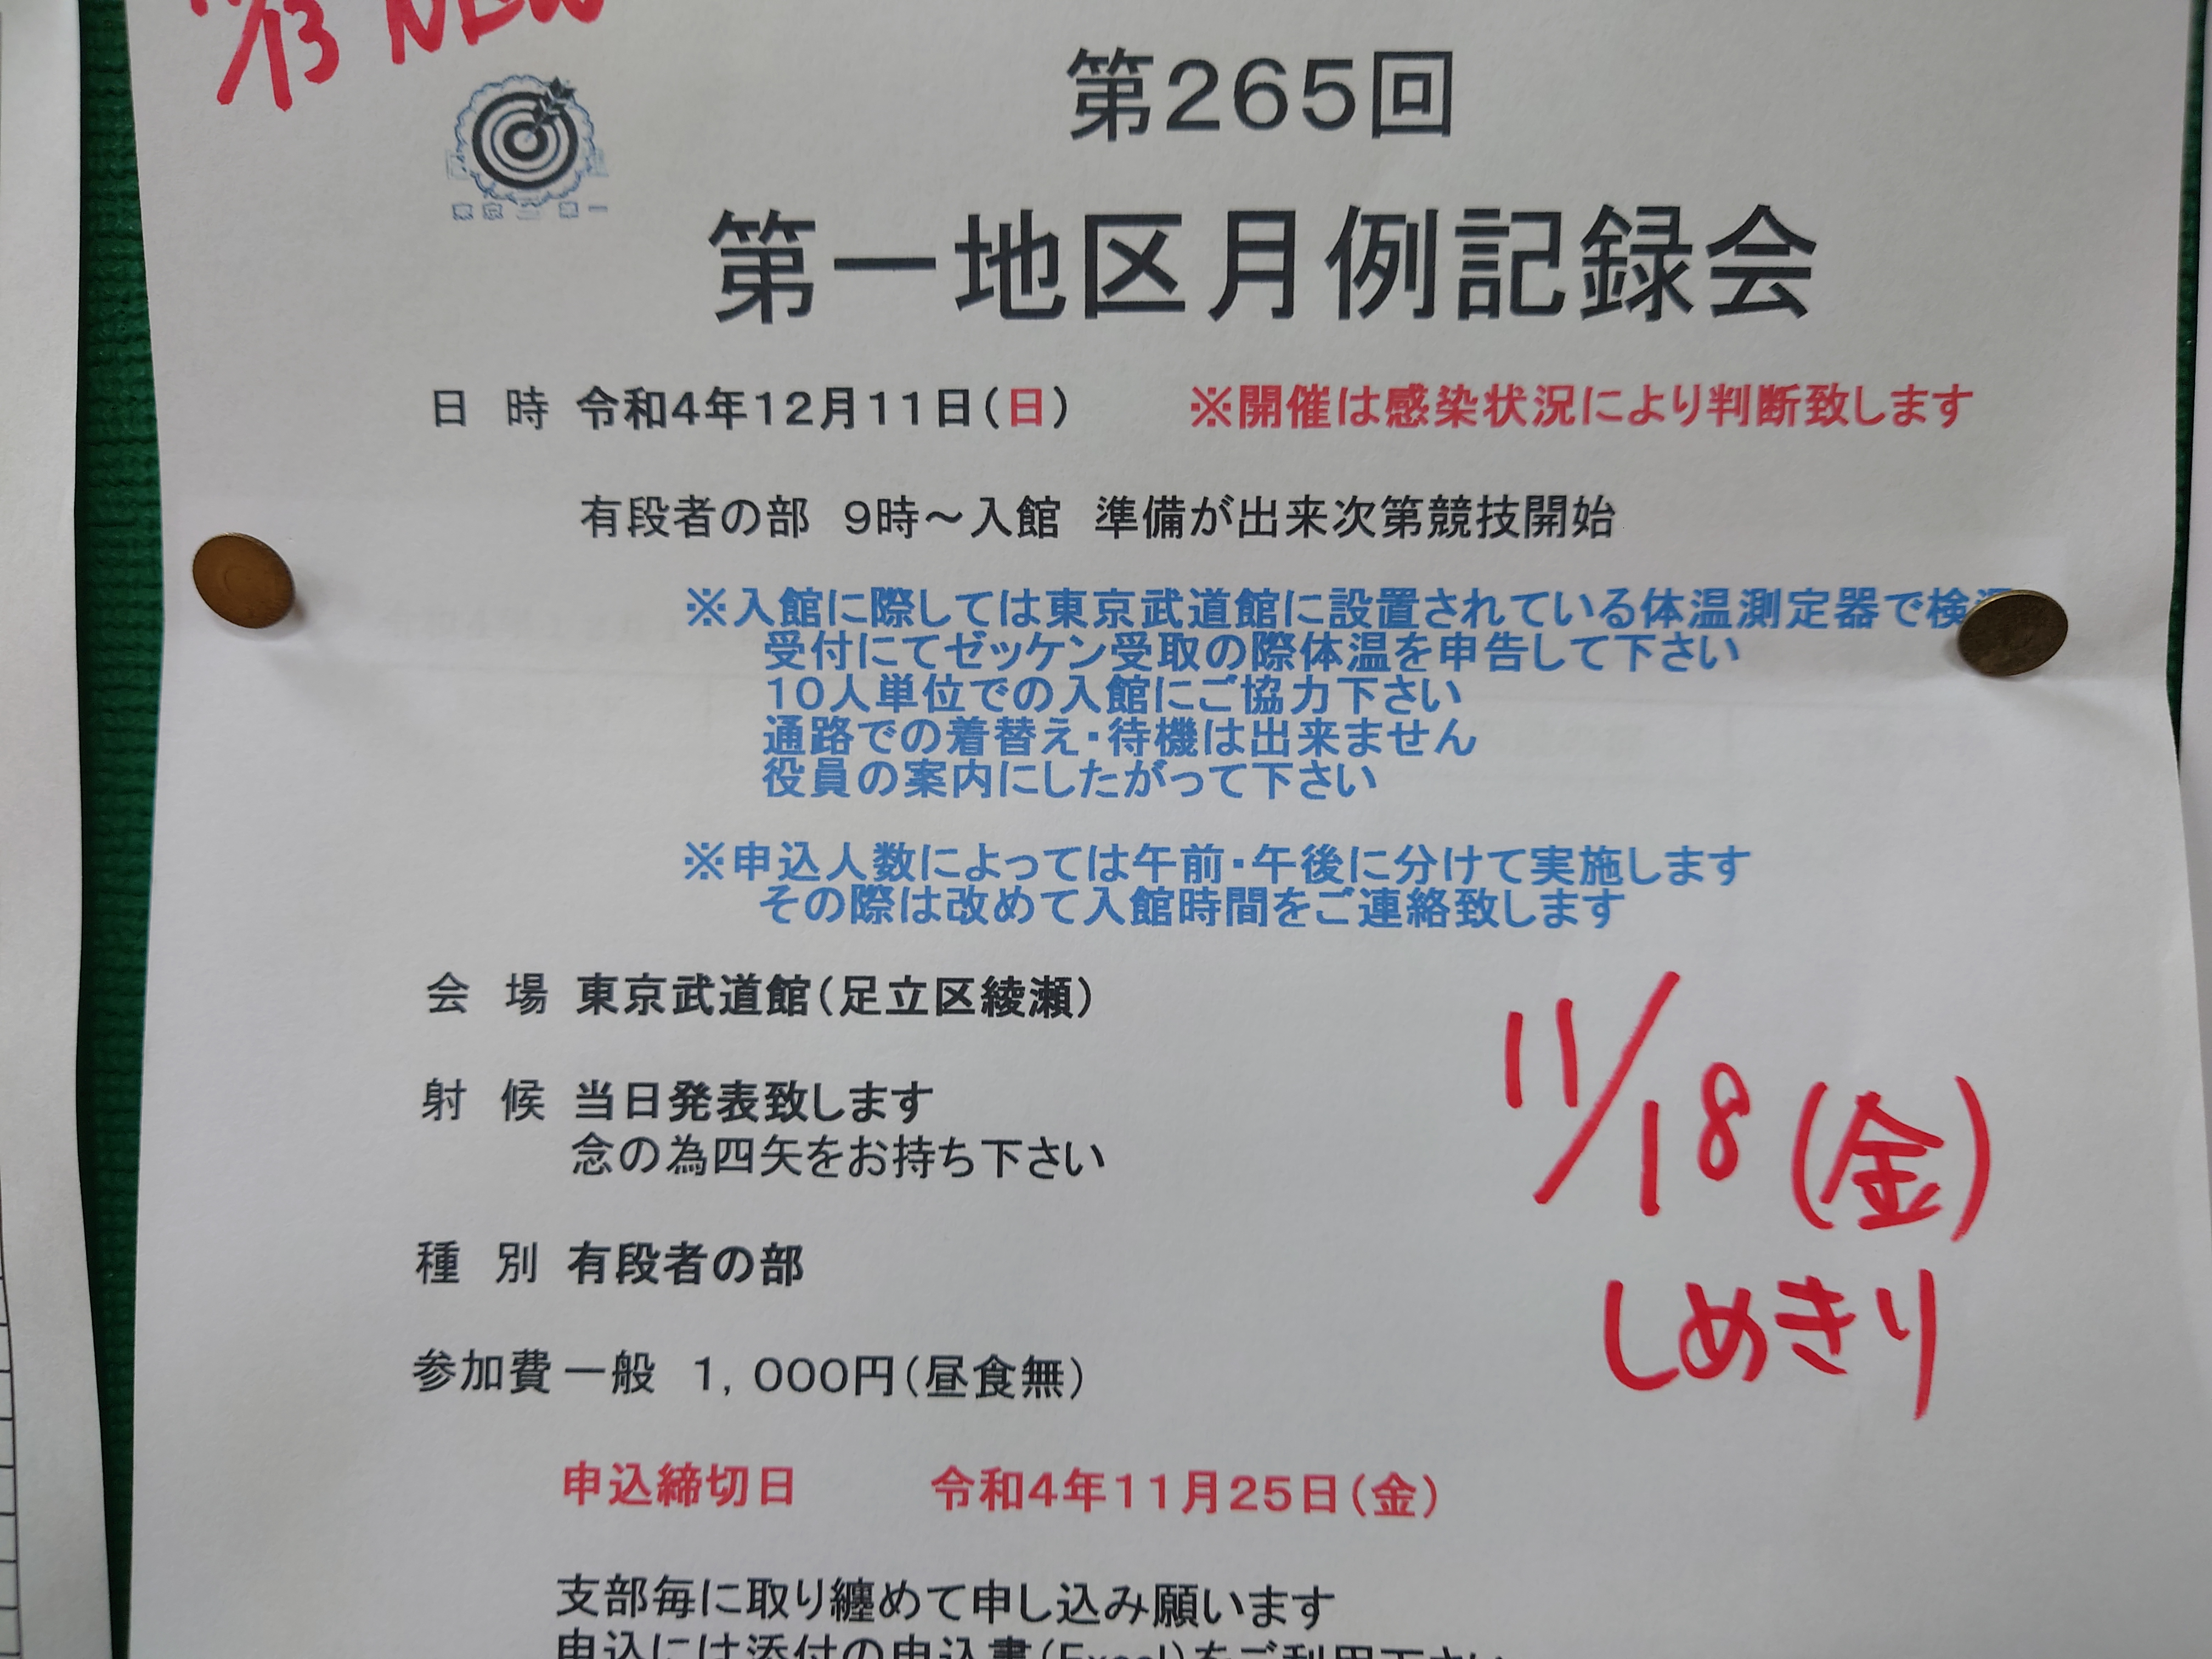 13 NEW
第265回
東京三第一
第一地区月例記録会
日 時 令和4年12月11日(日) ※開催は感染状況により判断致します
有段者の部 9時～入館 準備が出来次第競技開始
※入館に際しては東京武道館に設置されている体温測定器で検温
受付にてゼッケン受取の際体温を申告して下さい
10人単位での入館にご協力下さい
通路での着替え・待機は出来ません
役員の案内にしたがって下さい
※申込人数によっては午前・午後に分けて実施します
その際は改めて入館時間をご連絡致します
会 場 東京武道館(足立区綾瀬)
射 候 当日発表致します
念の為四矢をお持ち下さい
11/18(金)
しめきり
種 別 有段者の部
参加費 一般 1,000円(昼食無)
申込締切日 令和4年11月25日(金)
支部毎に取り纏めて申し込み願います
申込には添付の申込書(Excel)をご利用下さい